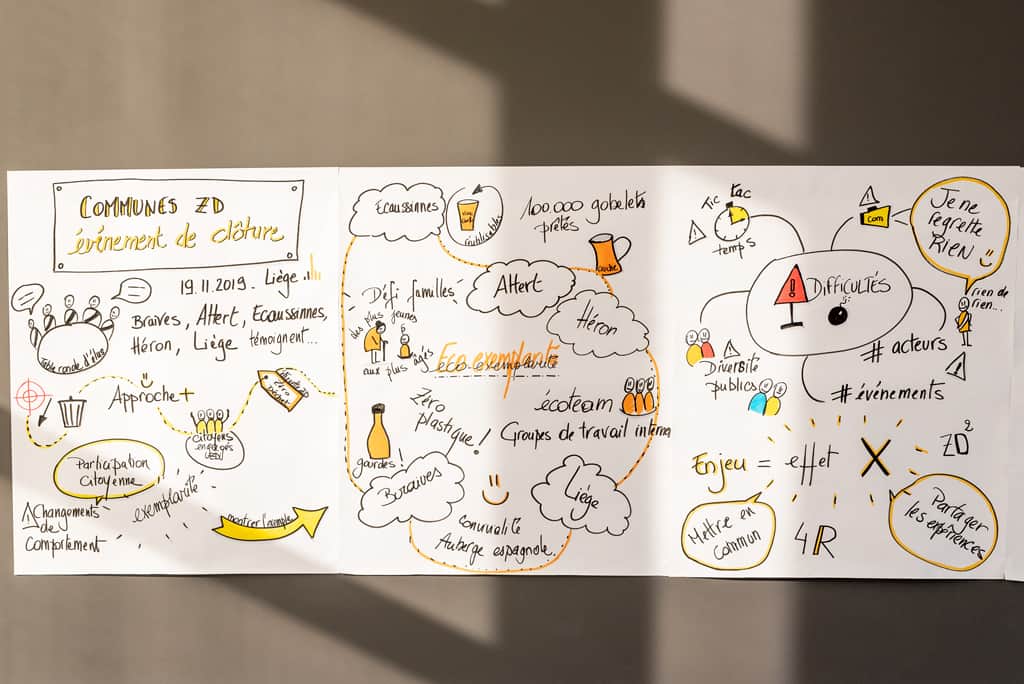 COMMUNES ZD
événement de clôture
19.11.2019. Liège
Braives, Attert, Ecaussinnes,
Héron, Liège témoignent...
Table ronde d'élus
Approche+
zéro
Citoyens
engagés
Participation
Citoyenne
exemplarité
Changements
de
Comportement
montrer l'exemple
Ecaussinnes
réutilisables
100.000 gobelets
prêtés
Attert
Héron
Défi familles
les plus jeunes
aux plus âgés
Eco exemplarité
éco-exemplarité
zéro
plastique!
gourdes!
écoteam
Groupes de travail interne
Braives
Liège
convivialité
Auberge espagnole.
Tic tac
temps
com
Je ne
regrette
RIEN
rien de
rien...
DIFFICULTÉS
Diversité
publics
# acteurs
# événements
Enjeu = effet X
ZD²
Mettre en
commun
4R
Partager
les expériences